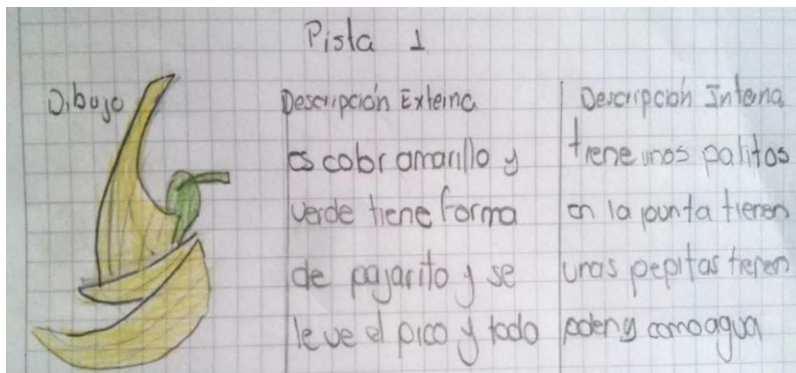 Pista 1
Dibujo
Descripción Externa
es color amarillo y
verde tiene forma
de pajarito y se
le ve el pico y todo
Descripción Interna
tiene unos palitos
en la punta tienen
unas pepitas tienen
polen y como agua